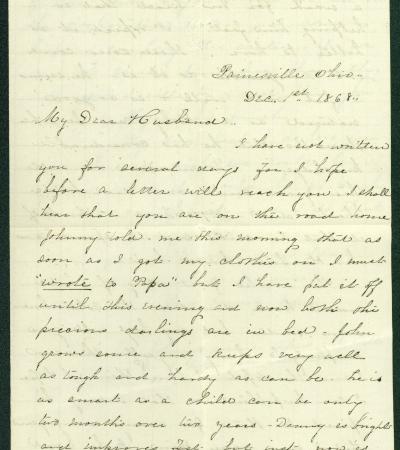 Painesville Ohio.
Dec. 1st 1868.
My Dear Husband.
I have not written
you for several days for I hope
before a letter will reach you I shall
hear that you are on the road home
Johnny told me this morning that as
soon as I got my clothes on I must
"wrote to Papa" but I have put it off
until this evening and now both the
precious darlings are in bed - John
grows some and keeps very well
as tough and hardy as can be he is
as smart as a child can be only
two months over two years - Denny is bright
and improves fast but just now is